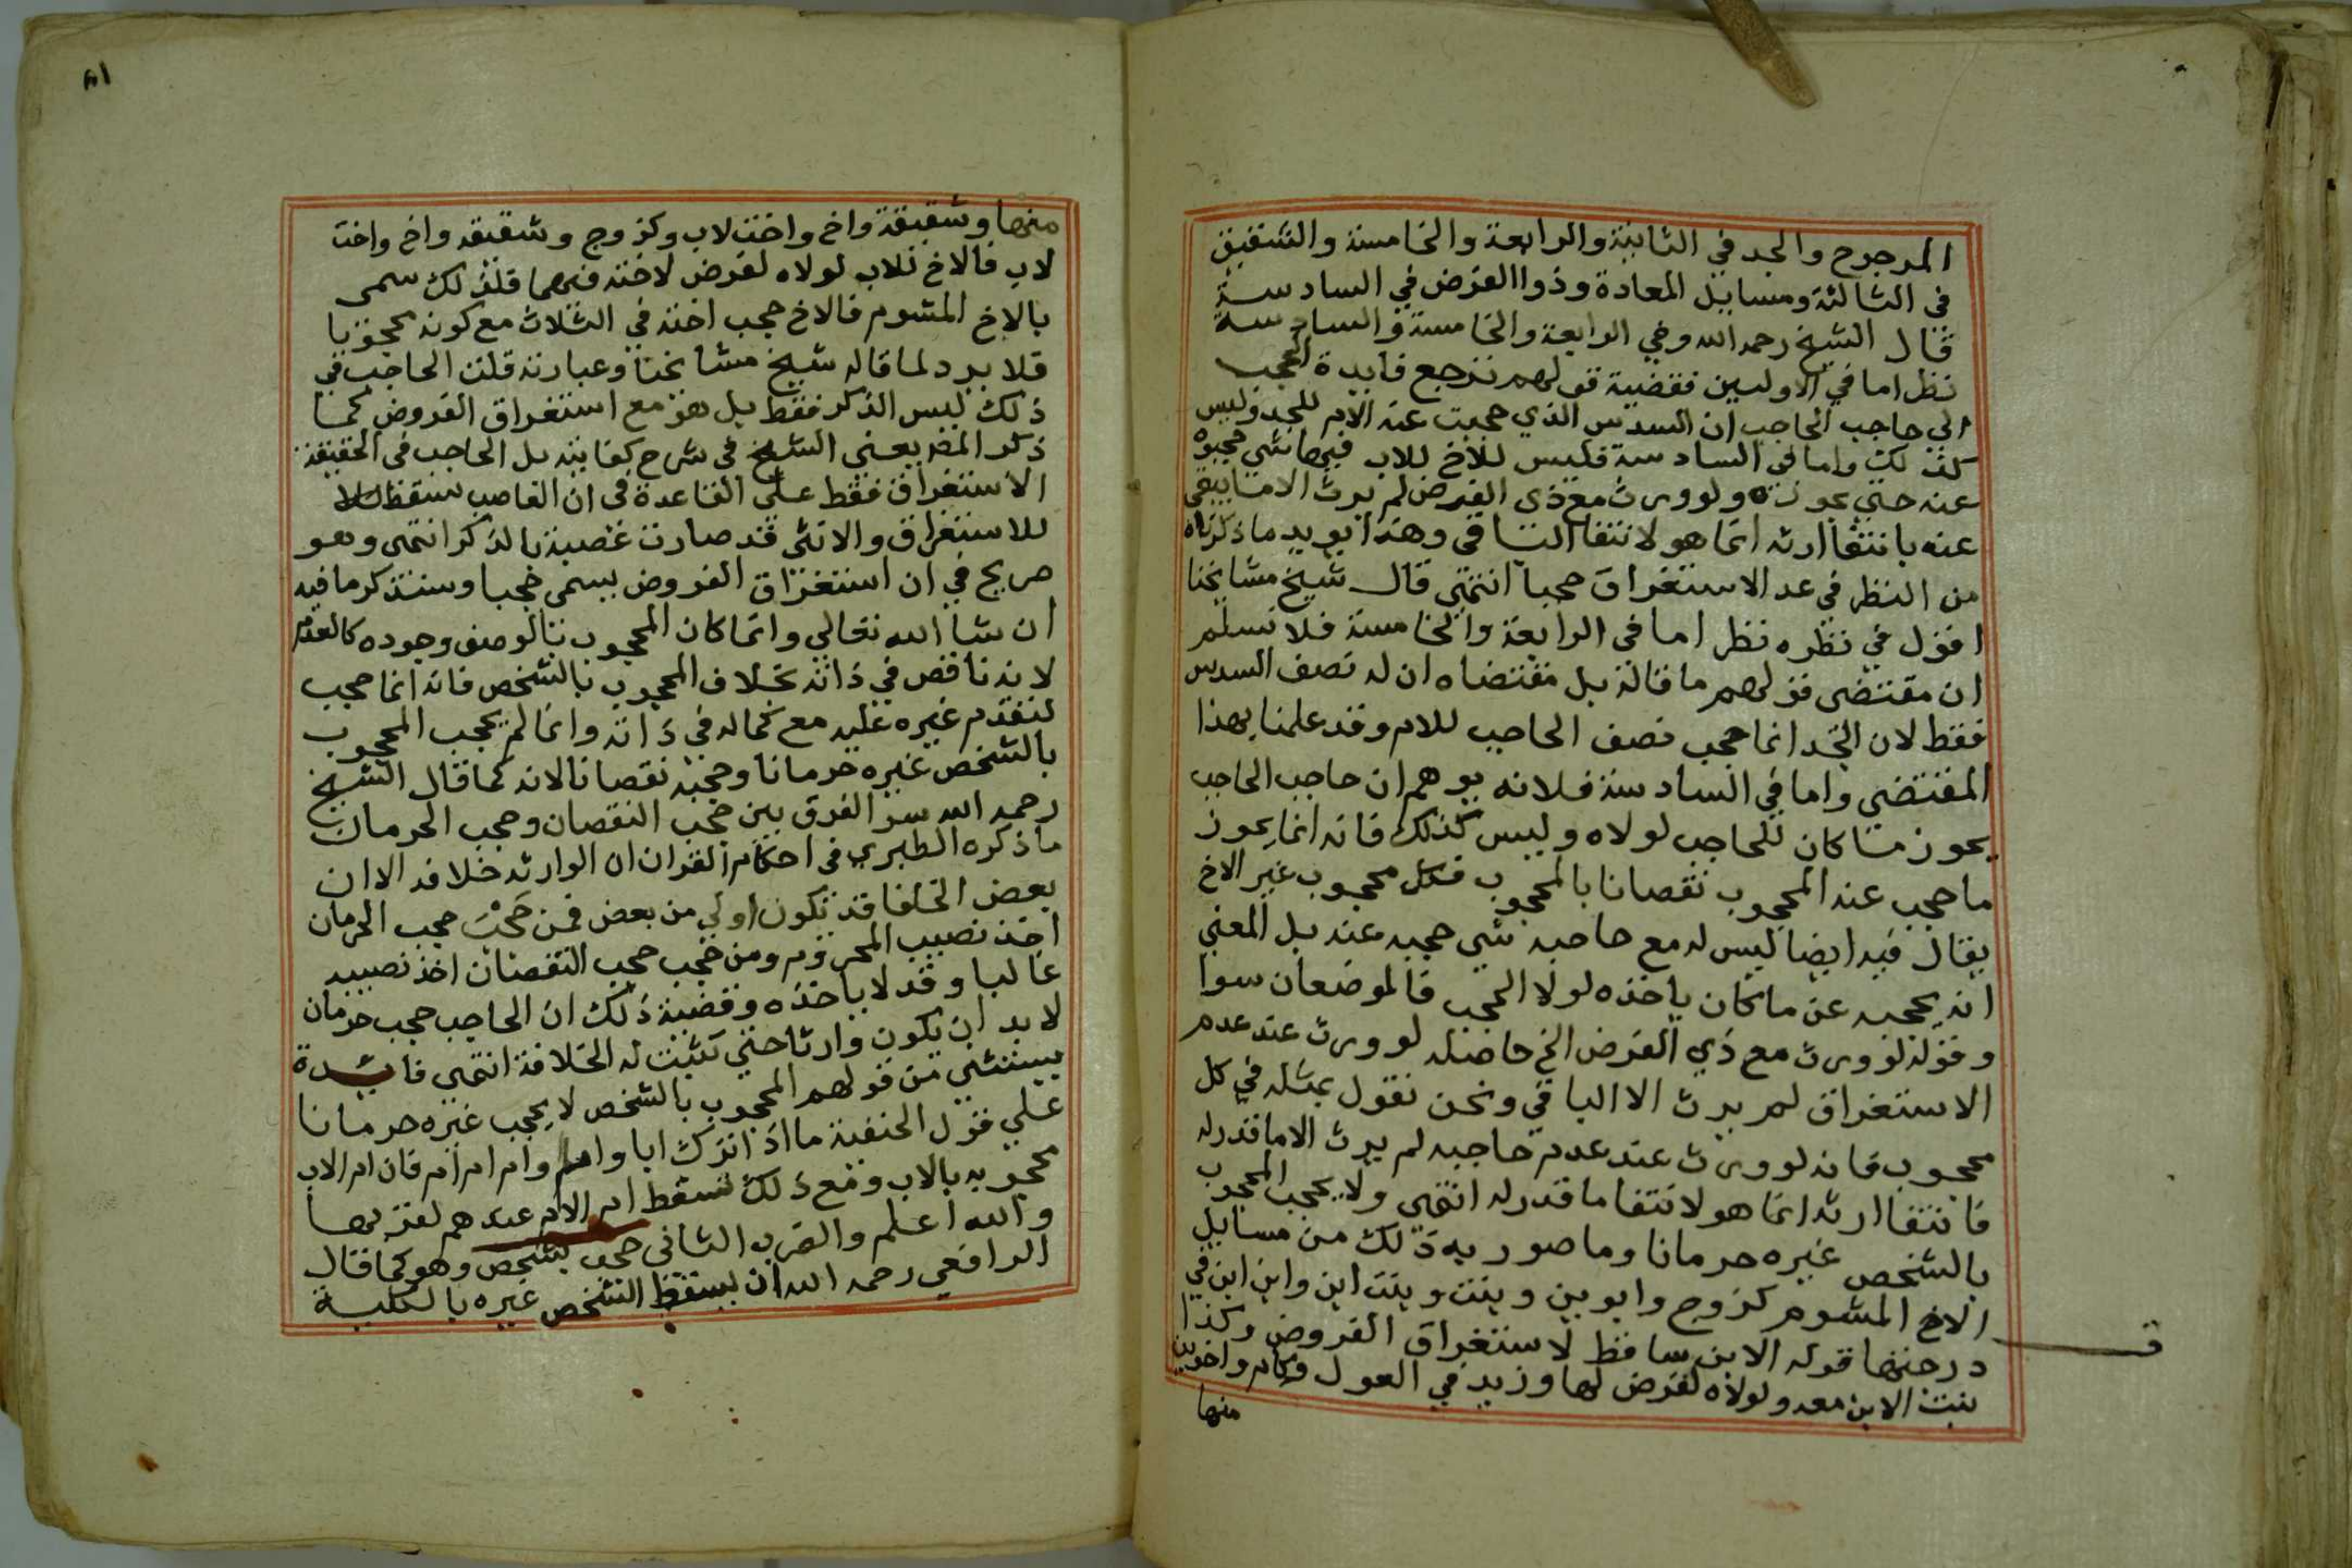 المرجوح والجد في الثانية والرابعة والخامسة والشقيق
في الثالثة ومسايل المعادة وذوا الفرض في السادسة
قال الشيخ رحمه الله وفي الرابعة والخامسة والسادسة
نظر اما في الاوليين فقضية قولهم ترجع فايدة الحجب
الي حاجب الحاجب ان السدس الذي حجبت عنه الام للجد وليس
كذلك واما في السادسة فليس للاخ للاب فيها شي حجبوه
عنه حتي يحوزه ولو ورث مع ذي الفرض لم يرث الا ما يبقي
عنه بانتفا ارثه انما هو لانتفا الباقي وهذا يويد ما ذكرناه
من النظر في عد الاستغراق حجبا انتهي قال شيخ مشايخنا
اقول في نظره نظر اما في الرابعة والخامسة فلا نسلم
ان مقتضي قولهم ما قاله بل مقتضاه ان له نصف السدس
فقط لان الجد انما حجب نصف الحاجب للام وقد علمنا بهذا
المقتضي واما في السادسة فلانه يوهم ان حاجب الحاجب
يحوز ما كان للحاجب لولاه وليس كذلك فانه انما يحوز
ما حجب عنه المحجوب نقصانا بالمحجوب فكل محجوب غير الاخ
يقال فيه ايضا ليس له مع حاجبه شي حجبه عنه بل المعني
انه يحجبه عن ما كان ياخذه لولا الحجب فالموضعان سوا
وقوله لو ورث مع ذي الفرض الخ حاصله لو ورث عند عدم
الاستغراق لم يرث الا الباقي ونحن نقول بمثله في كل
محجوب فانه لو ورث عند عدم حاجبه لم يرث الا ما قدر له
فانتفا ارثه انما هو لانتفا ما قدر له انتهي ولا يحجب المحجوب
بالشخص غيره حرمانا وما صور به ذلك من مسايل
الاخ المشوم كزوج وابوين وبنت وبنت ابن وابن ابن في
درجتها قوله الابن ساقط لاستغراق الفروض وكذا
بنت الابن معه ولولاه لفرض لها وزيد في العول وكام واخوين
منها
ق
٨١
منها وشقيقة واخ واخت لاب وكزوج وشقيقه واخ واخت
لاب فالاخ للاب لولاه لفرض لاخته فيهما فلذلك سمي
بالاخ المشوم فالاخ حجب اخته في الثلاث مع كونه محجوبا
فلا يرد لما قاله شيخ مشايخنا وعبارته قلت الحاجب في
ذلك ليس الذكر فقط بل هو مع استغراق الفروض كما
ذكر المص يعني الشيخ في شرح كفايته بل الحاجب في الحقيقة
الاستغراق فقط علي القاعدة في ان العاصب سقط
للاستغراق والانثي قد صارت عصبة بالذكر انتهي وهو
صريح في ان استغراق الفروض يسمي حجبا وسنذكر ما فيه
ان شا الله تعالي وانما كان المحجوب بالوصف وجوده كالعدم
لانه ناقص في ذاته بخلاف المحجوب بالشخص فانه انما حجب
لتقدم غيره عليه مع كماله في ذاته وانما لم يحجب المحجوب
بالشخص غيره حرمانا وحجبه نقصانا لانه كما قال الشيخ
رحمه الله سر الفرق بين حجب النقصان وحجب الحرمان
ما ذكره الطبري في احكام القران ان الوارثه خلافه الا ان
بعض الخلفا قد تكون اولي من بعض فمن حجب حجب الحرمان
اخذ نصيب المحروم ومن حجب حجب النقصان اخذ نصيبه
غالبا وقد لا ياخذه وقضية ذلك ان الحاجب حجب حرمان
لا بد ان يكون وارثا حتي تثبت له الخلافة انتهي فايدة
يستثني من قولهم المحجوب بالشخص لا يحجب غيره حرمانا
علي قول الحنفية ما اذا ترك ابا وام وام ام ام فان ام الاب
محجوبه بالاب ومع ذلك تسقط ام الام عندهم لقربها
والله اعلم والضرب الثاني حجب بشخص وهو كما قال
الرافعي رحمه الله ان يسقط الشخص غيره بالكلية